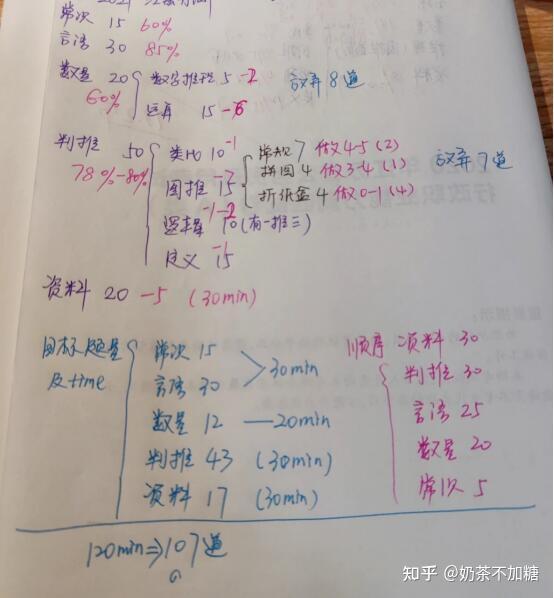 常识 15 60%
言语 30 85%
数量 20 数字推理 5 -2 放弃8道
60% 运算 15 -6
判推 50 类比 10 -1 常规 7 做4-5 (2) 放弃7道
78%-80% 图推 15 拼图 4 做3-4 (1)
折纸盒 4 做0-1 (4)
逻辑 10 (有一推三) -1-2
定义 15 -1
资料 20 -5 (30min)
目标题量及time
常识 15
言语 30 30min
数量 12 —20min
判推 43 (30min)
资料 17 (30min)
顺序 资料 30
判推 30
言语 25
数量 20
常识 5
120min⇒107道
知乎 @奶茶不加糖